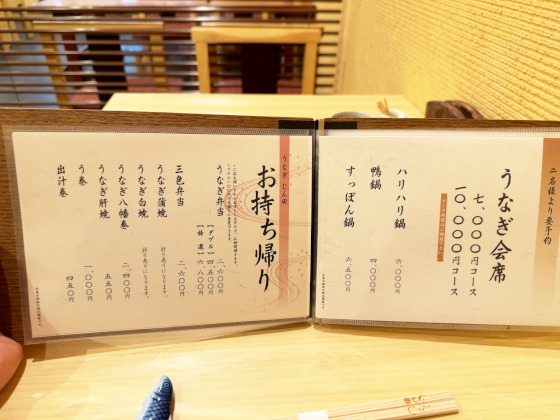 二名様より要予約
うなぎ会席
七、〇〇〇円コース
一〇、〇〇〇円コース
ハリハリ鍋 六、〇〇〇円
鴨鍋 四、〇〇〇円
すっぽん鍋 六、五〇〇円
うなぎ じん田
お持ち帰り
うなぎ弁当 二、六〇〇円
【ダブル】 四、五〇〇円
【特選】 六、八〇〇円
三色弁当 二、六〇〇円
うなぎ蒲焼 計り売りになります。
うなぎ白焼 計り売りになります。
うなぎ八幡巻 二、四〇〇円
うなぎ肝焼 五五〇円
う巻 一、〇〇〇円
出汁巻 四五〇円